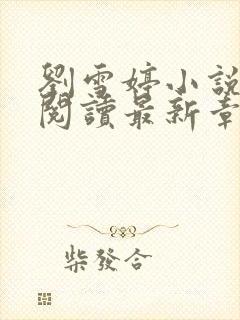 劉雪婷小說
閱讀最新章
柴發合